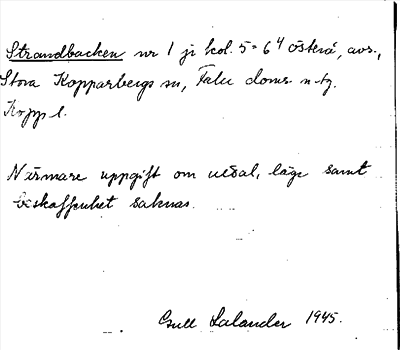 Strandbacken nr 1 ji kol. 5= 6⁴ Österå, avs.,
Stora Kopparbergs sn, Falu doms. n. tg.
Kopp l.
Närmare uppgift om uttal, läge samt
beskaffenhet saknas.
Gull Lalander 1945.